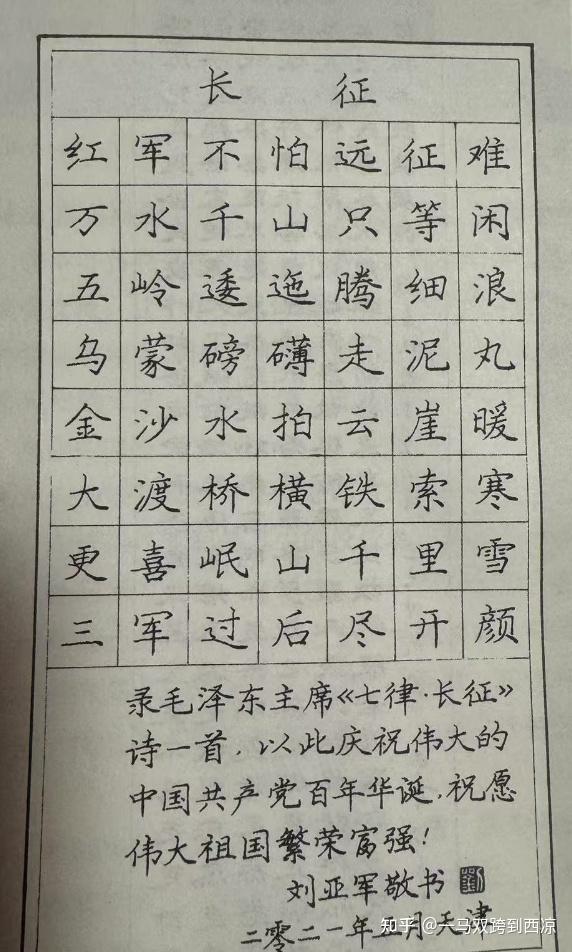 长 征
红军不怕远征难
万水千山只等闲
五岭逶迤腾细浪
乌蒙磅礴走泥丸
金沙水拍云崖暖
大渡桥横铁索寒
更喜岷山千里雪
三军过后尽开颜
录毛泽东主席《七律·长征》
诗一首，以此庆祝伟大的
中国共产党百年华诞，祝愿
伟大祖国繁荣富强！
刘亚军敬书
二零二一年五月天津
知乎 @一马双跨到西凉